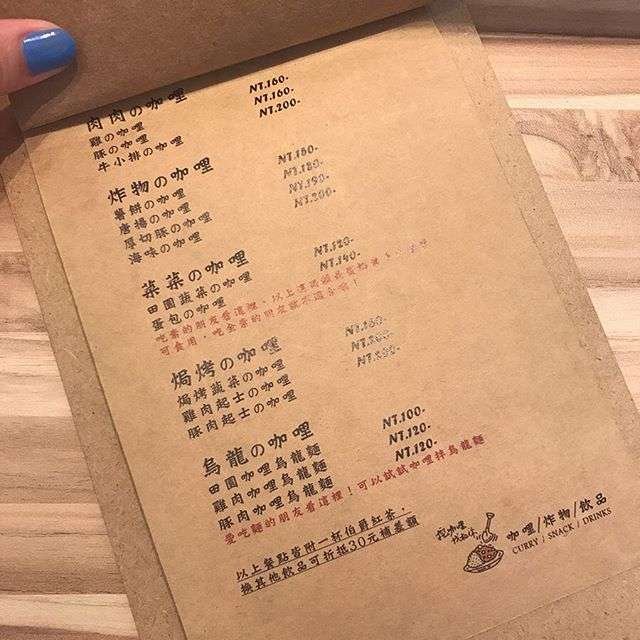 肉肉の咖哩
雞の咖哩 NT.160-
豚の咖哩 NT.160-
牛小排の咖哩 NT.200-
炸物の咖哩
薯餅の咖哩 NT.150-
唐揚の咖哩 NT.180-
厚切豚の咖哩 NT.190-
海味の咖哩 NT.200-
菜菜の咖哩
田園蔬菜の咖哩 NT.120-
蛋包の咖哩 NT.140-
吃素的朋友看這裡，以上
可食用，吃全素的朋友就不適合喔！
焗烤の咖哩
焗烤蔬菜の咖哩 NT.160-
雞肉起士の咖哩 NT.200-
豚肉起士の咖哩 NT.200-
烏龍の咖哩
田園咖哩烏龍麵 NT.100-
雞肉咖哩烏龍麵 NT.120-
豚肉咖哩烏龍麵 NT.120-
愛吃麵的朋友看這裡！可以試試咖哩拌烏龍麵
以上餐點皆附一杯伯爵紅茶，
換其他飲品可折抵30元補差額
咖哩/炸物/飲品
CURRY / SNACK / DRINKS